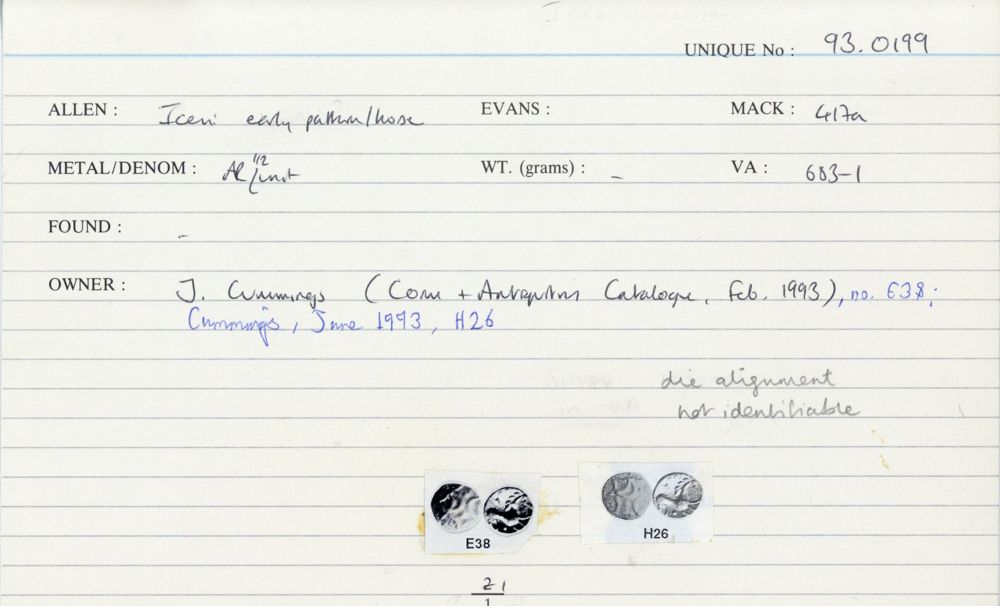 UNIQUE No : 93.0199
ALLEN : Iceni early pattern/horse EVANS : MACK : 417a
METAL/DENOM : AR 1/2 unit WT. (grams) : - VA : 683-1
FOUND : -
OWNER : J. Cummings (Coin + Antiquities Catalogue, Feb. 1993), no. E38;
Cummings, June 1993, H26
die alignment
not identifiable
E38
H26
21
1